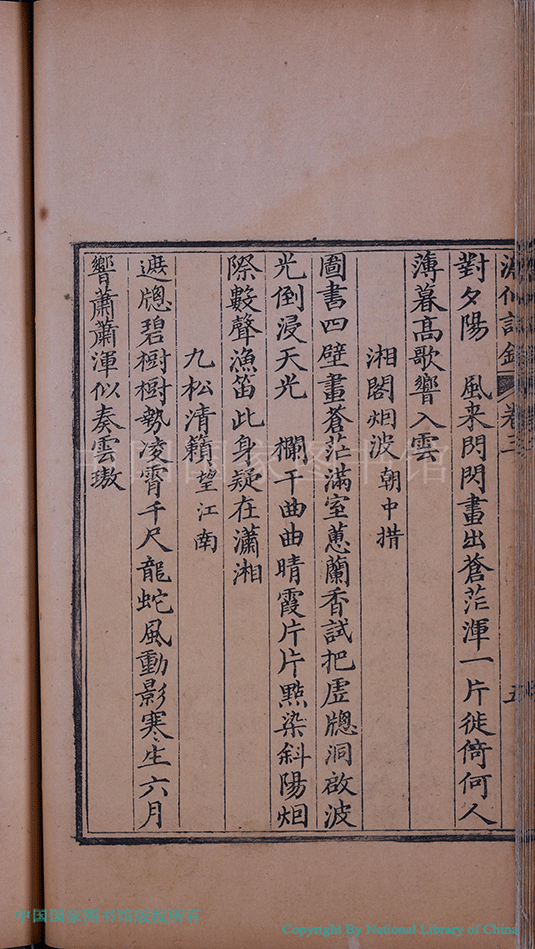 對夕陽　風来閃閃畫出蒼茫渾一片徙倚何人
薄暮髙歌響入雲
湘閣烟波　朝中措
圖書四壁畫蒼茫滿室蕙蘭香試把虛牕洞啟波
光倒浸天光　欄干曲曲晴霞片片㸃染斜陽烟
際數聲漁笛此身疑在瀟湘
九松清籟　望江南
遮牕碧樹樹勢凌霄千尺龍蛇風動影寒生六月
響蕭蕭渾似奏雲璈
中国国家图书馆
中国国家图书馆版权所有
Copyright By National Library of China